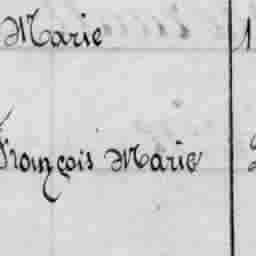 Marie 1
François Marie 2